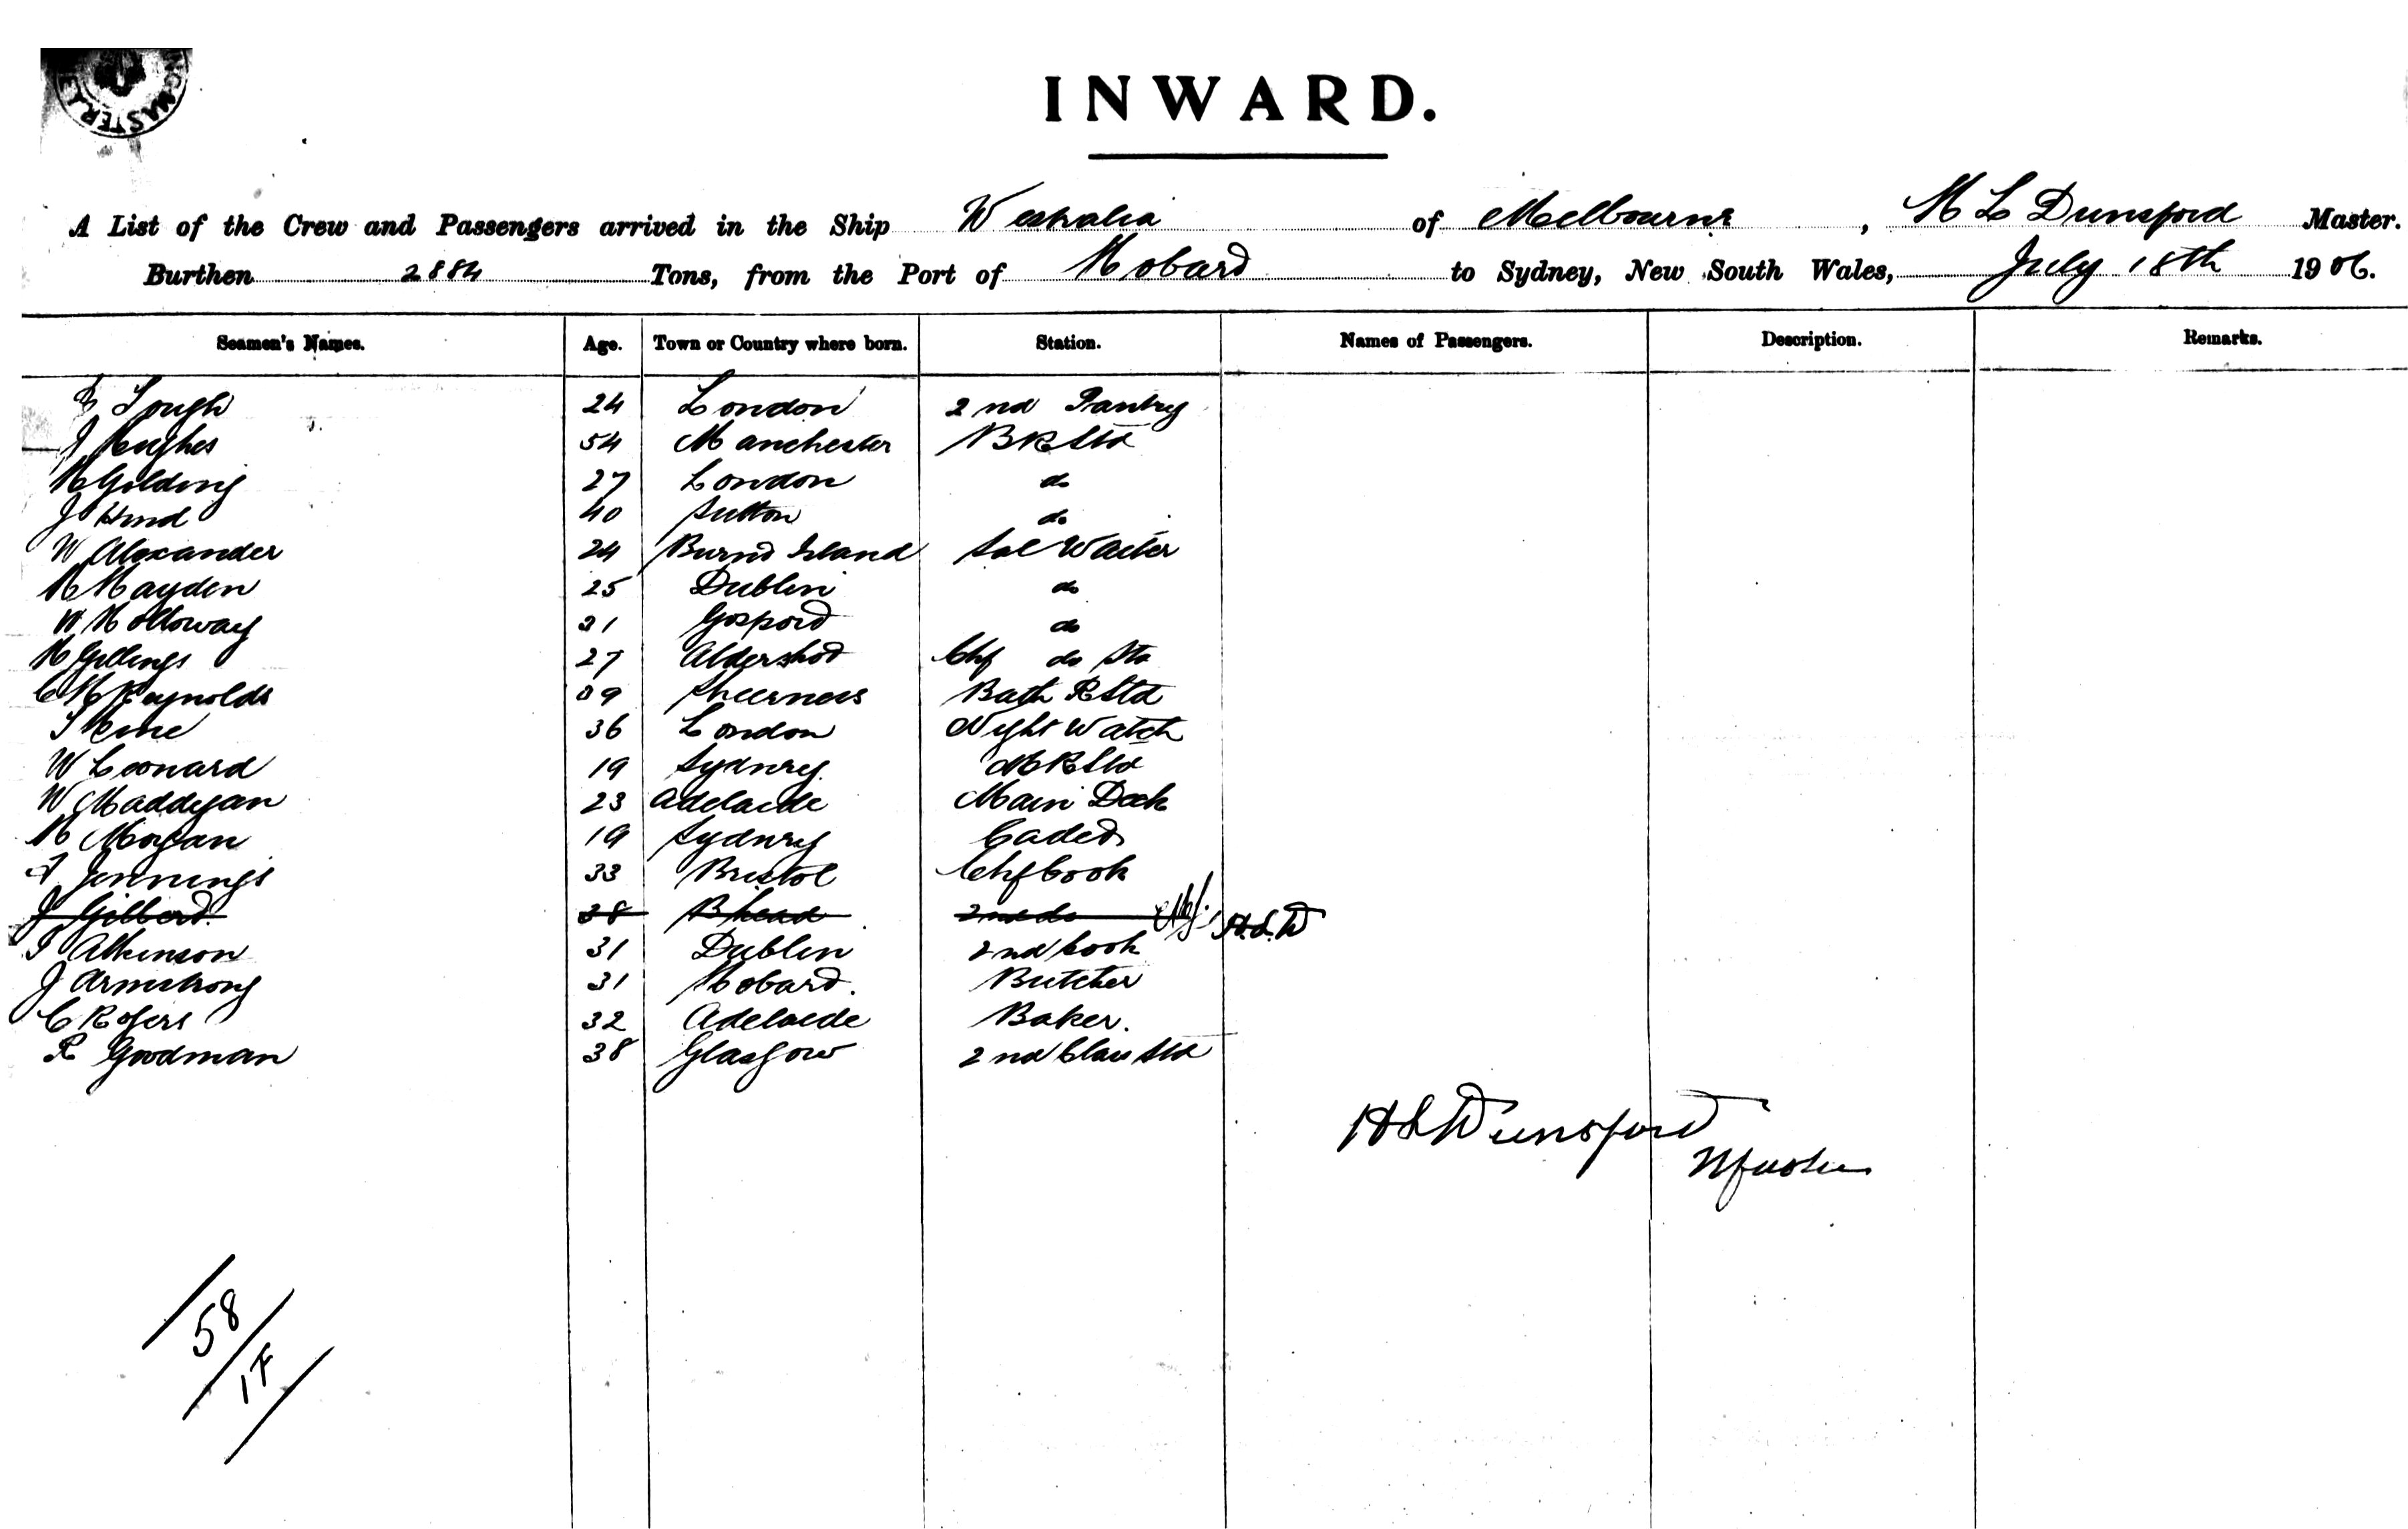 INWARD.
A List of the Crew and Passengers arrived in the Ship Westralia of Melbourne, H L Dunsford Master.
Burthen 2884 Tons, from the Port of Hobart to Sydney, New South Wales, July 18th 1906.
Seamen's Names. Age. Town or Country where born. Station. Names of Passengers. Description. Remarks.
Tough 24 London 2nd Pantry
J Hughes 54 Manchester BR Std
H Golding 27 London do
J Hind 40 Sutton do
W Alexander 24 Burnt Island Sal Waiter
H Hayden 25 Dublin do
W Holloway 21 Gosport do
H Gillings 27 Aldershot Chf do Std
C H Reynolds Sheerness Bath R Std
36 London Night Watch
W Leonard 19 Sydney MR Std
W Maddigan 23 Adelaide Main Deck
H Morgan 19 Sydney Cadet
Jennings 33 Bristol Chf Cook
J Gilbert 38 B head 2nd do H.L.D
T Atkinson 31 Dublin 2nd Cook
J Armstrong 31 Hobart. Butcher
C Rogers 32 Adelaide Baker.
R Goodman 38 Glasgow 2nd Class Std
H L Dunsford
Master
58